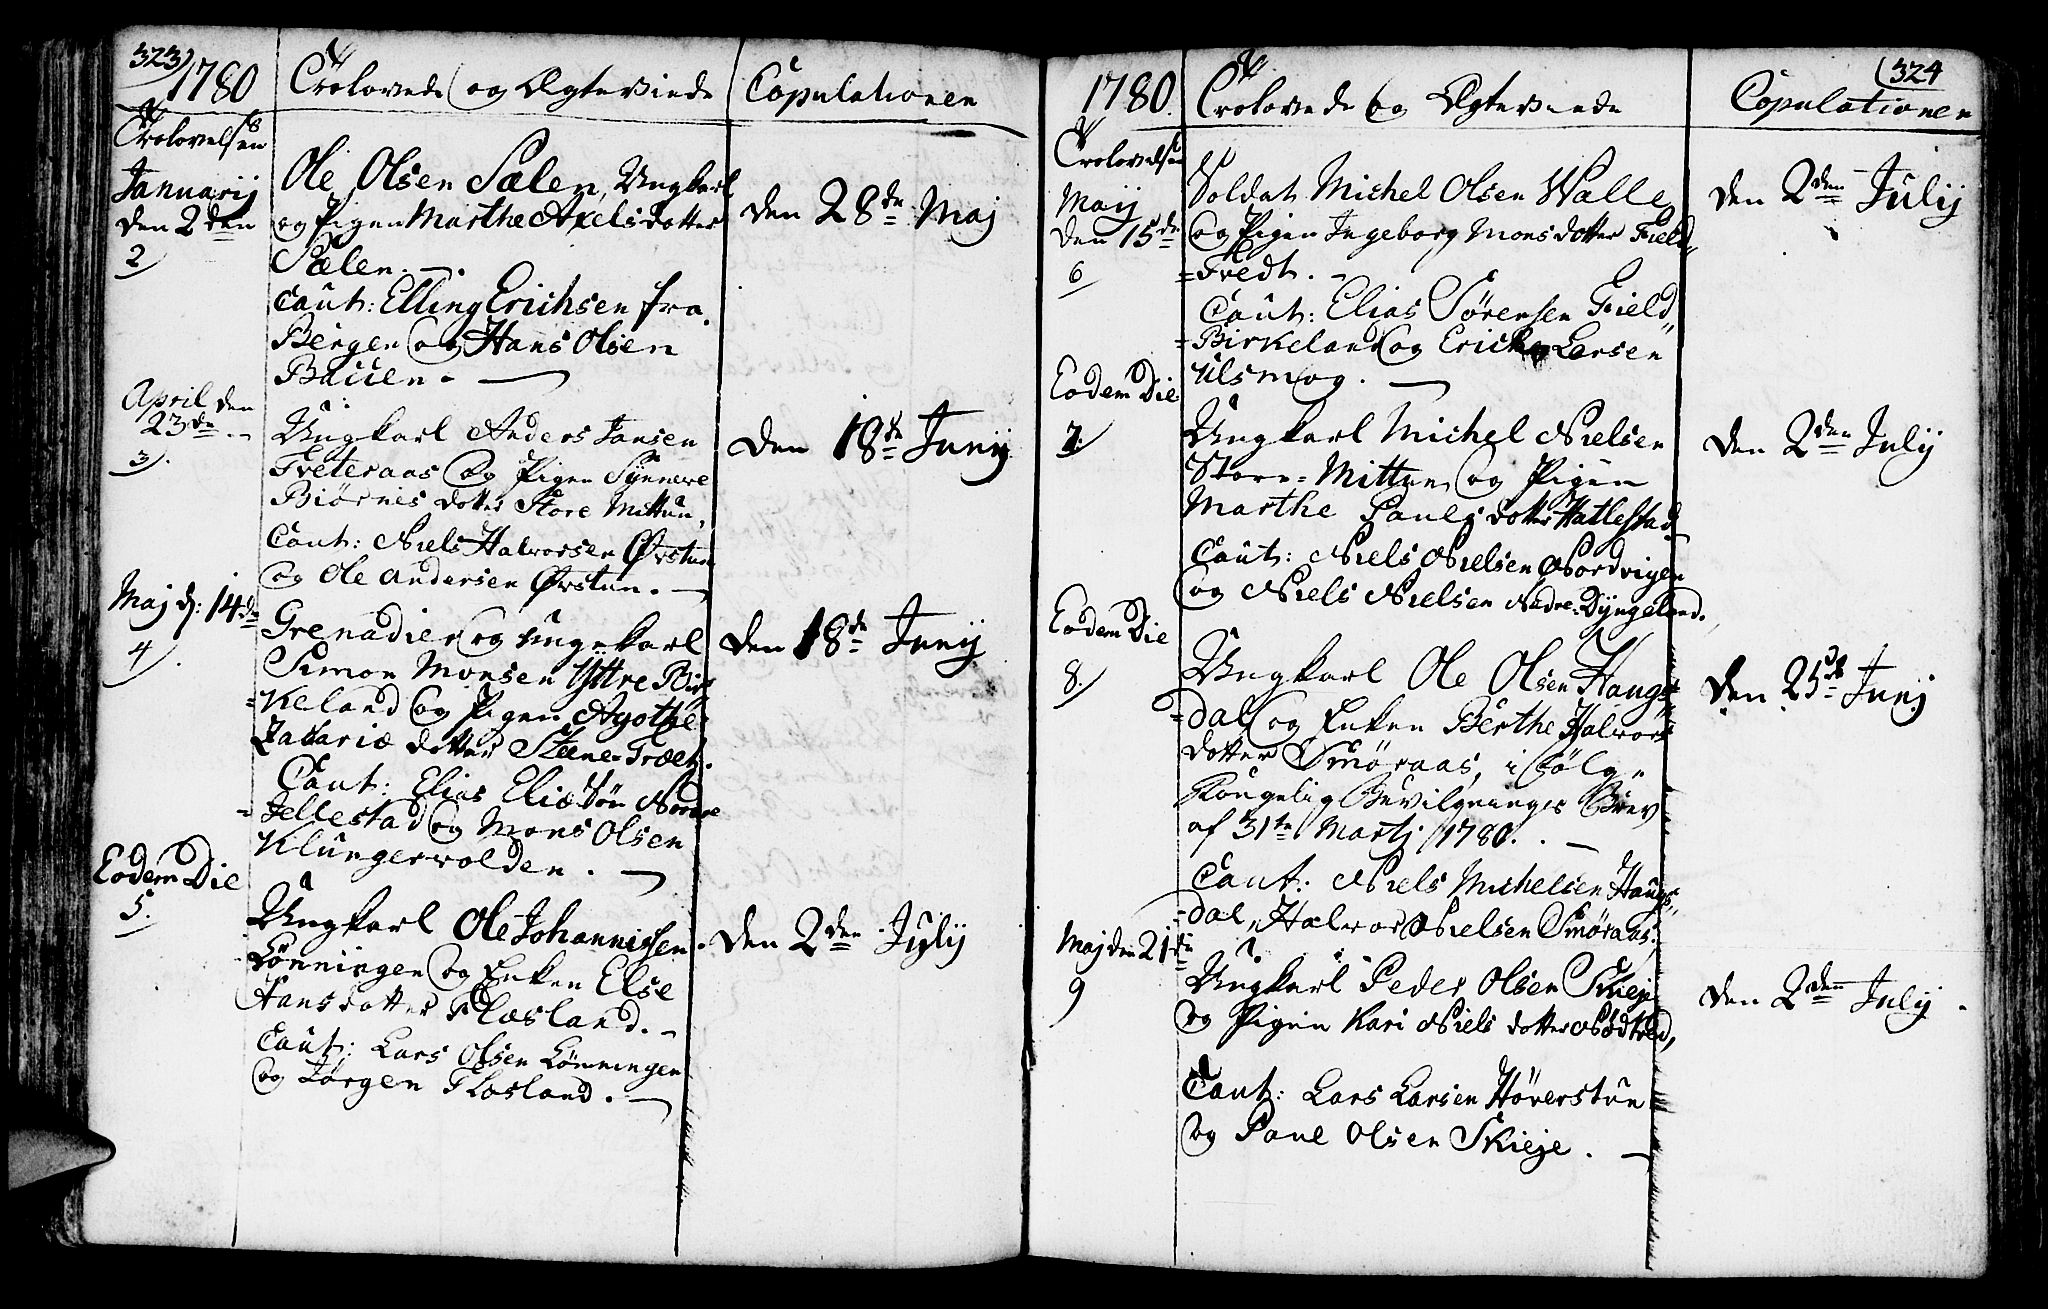 323)
1780
Trolovede og Ægteviede
Copulationen
Trolovelsen
Januarij
den 2den
2
Ole Olsen Sælen, Ungkarl
og Pigen Marthe Axelsdotter
Sælen. —
Caut: Elling Erichsen fra
Bergen og Hans Olsen
Bauen. —
den 28de Maj
April den
23de —
3
Ungkarl Anders Jansen
Treteraas og Pigen Synneve
Biørnis dotter Store Mittun,
Caut: Niels Halvorsen Ørstun
og Ole Andersen Ørstun. —
den 18de Junij
Maj d: 14de
4
Grenadier og Ungekarl
Simon Monsen Yttre Bir
=keland og Pigen Agothe
Zakariæ dotter Steene-Træet.
Caut: Elias Eliæ Søn Nordre
=Jellestad og Mons Olsen
Klungervolden. —
den 18de Junij
Eodem Die
5.
Ungkarl Ole Johannissen
Lønningen og Enken Else
Hansdotter Flæsland. —
Caut: Lars Olsen Lønningen
og Jørgen Flæsland. —
den 2den Julij
324
1780.
Trolovede og Ægteviede
Copulationen
Trolovelsen
Maij
den 15de
6
Soldat Michel Olsen Walle
og Pigen Ingeborg Monsdotter Field
=Tredt. —
Caut: Elias Sørensen Field
=Birkeland og Erich Larsen
Ulsmog. —
den 2den Julij
Eodem Die
7.
Ungkarl Michel Nielsen
Store=Mittun og Pigen
Marthe Pauels dotter Hatlestad
Caut: Niels Nielsen Nordvigen
og Niels Nielsen Nedre-Dyngeland.
den 2den Julij
Eodem Die
8.
Ungkarl Ole Olsen Haugs
=dal og Enken Berthe Halvors
dotter Smøraas, i følge
Kongelig Bevilgnings Brev
af 31te Martj 1780. —
Caut: Niels Michelsen Haugs
=dal, Halvor Nielsen Smøraas.
den 25de Junj
Maj den 21de
9
Ungkarl Peder Olsen Skieje
og Pigen Kari Niels dotter Nødtved,
Caut: Lars Larsen Høverstun
og Pauel Olsen Skieje. —
den 2den Julij